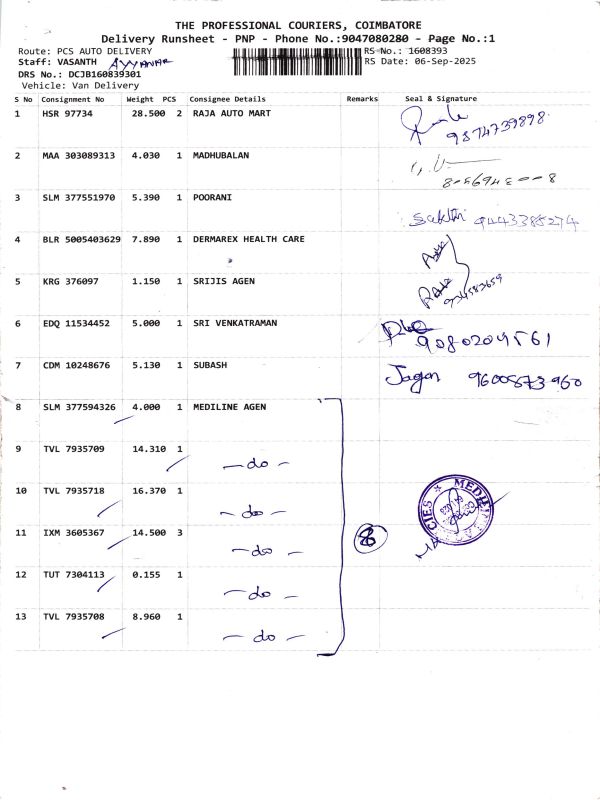 THE PROFESSIONAL COURIERS, COIMBATORE
Delivery Runsheet - PNP - Phone No.:9047080280 - Page No.:1
Route: PCS AUTO DELIVERY RS No.: 1608393
Staff: VASANTH AYYANAR RS Date: 06-Sep-2025
DRS No.: DCJB160839301
Vehicle: Van Delivery
S No Consignment No Weight PCS Consignee Details Remarks Seal & Signature
1 HSR 97734 28.500 2 RAJA AUTO MART
9874739898
2 MAA 303089313 4.030 1 MADHUBALAN
3 SLM 377551970 5.390 1 POORANI
Sakthi 9443385274
4 BLR 5005403629 7.890 1 DERMAREX HEALTH CARE
5 KRG 376097 1.150 1 SRIJIS AGEN
6 EDQ 11534452 5.000 1 SRI VENKATRAMAN
9080204561
7 CDM 10248676 5.130 1 SUBASH
Jagan 9600873960
8 SLM 377594326 4.000 1 MEDILINE AGEN
9 TVL 7935709 14.310 1
- do -
10 TVL 7935718 16.370 1
- do -
11 IXM 3605367 14.500 3 8
- do -
12 TUT 7304113 0.155 1
- do -
13 TVL 7935708 8.960 1
- do -